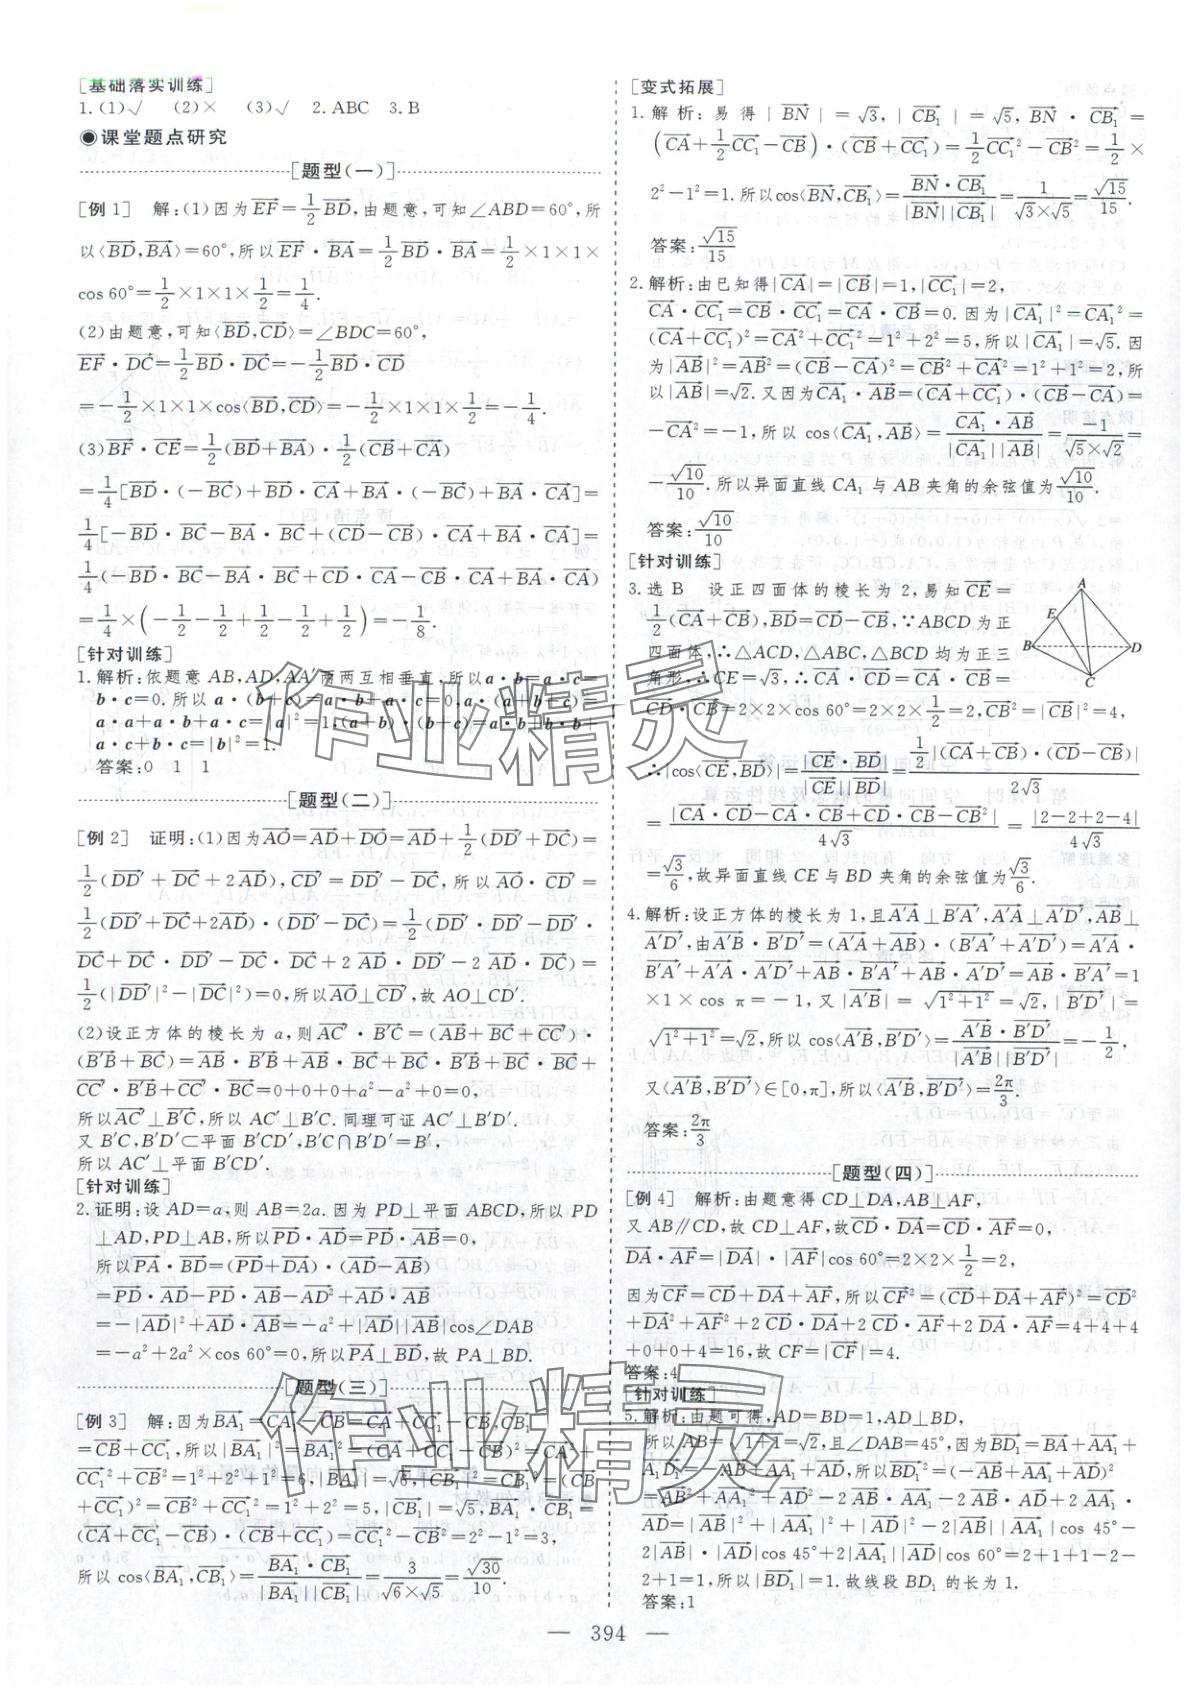 [基础落实训练]
1.(1)√ (2)× (3)√ 2.ABC 3.B
◉课堂题点研究
[题型(一)]
[例1] 解:(1)因为$\overrightarrow{EF}=\frac{1}{2}\overrightarrow{BD}$,由题意,可知∠ABD=60°,所
以⟨$\overrightarrow{BD},\overrightarrow{BA}$⟩=60°,所以$\overrightarrow{EF}·\overrightarrow{BA}=\frac{1}{2}\overrightarrow{BD}·\overrightarrow{BA}=\frac{1}{2}$×1×1×
cos 60°=$\frac{1}{2}×1×1×\frac{1}{2}=\frac{1}{4}$.
(2)由题意,可知⟨$\overrightarrow{BD},\overrightarrow{CD}$⟩=∠BDC=60°,
$\overrightarrow{EF}·\overrightarrow{DC}=\frac{1}{2}\overrightarrow{BD}·\overrightarrow{DC}=-\frac{1}{2}\overrightarrow{BD}·\overrightarrow{CD}$
$=-\frac{1}{2}×1×1×\cos⟨\overrightarrow{BD},\overrightarrow{CD}⟩=-\frac{1}{2}×1×1×\frac{1}{2}=-\frac{1}{4}$.
(3)$\overrightarrow{BF}·\overrightarrow{CE}=\frac{1}{2}(\overrightarrow{BD}+\overrightarrow{BA})·\frac{1}{2}(\overrightarrow{CB}+\overrightarrow{CA})$
$=\frac{1}{4}[\overrightarrow{BD}·(-\overrightarrow{BC})+\overrightarrow{BD}·\overrightarrow{CA}+\overrightarrow{BA}·(-\overrightarrow{BC})+\overrightarrow{BA}·\overrightarrow{CA}]=$
$\frac{1}{4}[-\overrightarrow{BD}·\overrightarrow{BC}-\overrightarrow{BA}·\overrightarrow{BC}+(\overrightarrow{CD}-\overrightarrow{CB})·\overrightarrow{CA}+\overrightarrow{BA}·\overrightarrow{CA}]=$
$\frac{1}{4}(-\overrightarrow{BD}·\overrightarrow{BC}-\overrightarrow{BA}·\overrightarrow{BC}+\overrightarrow{CD}·\overrightarrow{CA}-\overrightarrow{CB}·\overrightarrow{CA}+\overrightarrow{BA}·\overrightarrow{CA})$
$=\frac{1}{4}×(-\frac{1}{2}-\frac{1}{2}+\frac{1}{2}-\frac{1}{2}+\frac{1}{2})=-\frac{1}{8}$.
[针对训练]
1.解析:依题意AB,AD,AA′两两互相垂直,所以a·b=a·c=
b·c=0.所以a·(b+c)=a·b+a·c=0,a·(a+b+c)=
a·a+a·b+a·c=|a|²=1,(a+b)·(b+c)=a·b+b·b+
a·c+b·c=|b|²=1.
答案:0 1 1
[题型(二)]
[例2] 证明:(1)因为$\overrightarrow{AO}=\overrightarrow{AD}+\overrightarrow{DO}=\overrightarrow{AD}+\frac{1}{2}(\overrightarrow{DD'}+\overrightarrow{DC})=$
$\frac{1}{2}(\overrightarrow{DD'}+\overrightarrow{DC}+2\overrightarrow{AD}),\overrightarrow{CD'}=\overrightarrow{DD'}-\overrightarrow{DC}$,所以$\overrightarrow{AO}·\overrightarrow{CD'}=$
$\frac{1}{2}(\overrightarrow{DD'}+\overrightarrow{DC}+2\overrightarrow{AD})·(\overrightarrow{DD'}-\overrightarrow{DC})=\frac{1}{2}(\overrightarrow{DD'}·\overrightarrow{DD'}-\overrightarrow{DD'}·$
$\overrightarrow{DC}+\overrightarrow{DC}·\overrightarrow{DD'}-\overrightarrow{DC}·\overrightarrow{DC}+2\overrightarrow{AD}·\overrightarrow{DD'}-2\overrightarrow{AD}·\overrightarrow{DC})=$
$\frac{1}{2}(|\overrightarrow{DD'}|^2-|\overrightarrow{DC}|^2)=0$,所以$\overrightarrow{AO}⊥\overrightarrow{CD'}$,故AO⊥CD′.
(2)设正方体的棱长为a,则$\overrightarrow{AC'}·\overrightarrow{B'C}=(\overrightarrow{AB}+\overrightarrow{BC}+\overrightarrow{CC'})·$
$(\overrightarrow{B'B}+\overrightarrow{BC})=\overrightarrow{AB}·\overrightarrow{B'B}+\overrightarrow{AB}·\overrightarrow{BC}+\overrightarrow{BC}·\overrightarrow{B'B}+\overrightarrow{BC}·\overrightarrow{BC}+$
$\overrightarrow{CC'}·\overrightarrow{B'B}+\overrightarrow{CC'}·\overrightarrow{BC}$=0+0+0+a²-a²+0=0,
所以$\overrightarrow{AC'}⊥\overrightarrow{B'C}$,所以AC′⊥B′C.同理可证AC′⊥B′D′.
又B′C,B′D′⊂平面B′CD′,B′C∩B′D′=B′,
所以AC′⊥平面B′CD′.
[针对训练]
2.证明:设AD=a,则AB=2a.因为PD⊥平面ABCD,所以PD
⊥AD,PD⊥AB,所以$\overrightarrow{PD}·\overrightarrow{AD}=\overrightarrow{PD}·\overrightarrow{AB}=0$,
所以$\overrightarrow{PA}·\overrightarrow{BD}=(\overrightarrow{PD}+\overrightarrow{DA})·(\overrightarrow{AD}-\overrightarrow{AB})$
$=\overrightarrow{PD}·\overrightarrow{AD}-\overrightarrow{PD}·\overrightarrow{AB}-\overrightarrow{AD}^2+\overrightarrow{AD}·\overrightarrow{AB}$
$=-|\overrightarrow{AD}|^2+\overrightarrow{AD}·\overrightarrow{AB}=-a^2+|\overrightarrow{AD}||\overrightarrow{AB}|$cos∠DAB
=-a²+2a²×cos 60°=0,所以$\overrightarrow{PA}⊥\overrightarrow{BD}$,故PA⊥BD.
[题型(三)]
[例3] 解:因为$\overrightarrow{BA_1}=\overrightarrow{CA_1}-\overrightarrow{CB}=\overrightarrow{CA}+\overrightarrow{CC_1}-\overrightarrow{CB},\overrightarrow{CB_1}$
$=\overrightarrow{CB}+\overrightarrow{CC_1}$,所以$|\overrightarrow{BA_1}|^2=\overrightarrow{BA_1}^2=(\overrightarrow{CA}+\overrightarrow{CC_1}-\overrightarrow{CB})^2=\overrightarrow{CA}^2+$
$\overrightarrow{CC_1}^2+\overrightarrow{CB}^2=1^2+2^2+1^2=6,|\overrightarrow{BA_1}|=\sqrt{6},|\overrightarrow{CB_1}|^2=\overrightarrow{CB_1}^2=(\overrightarrow{CB}$
$+\overrightarrow{CC_1})^2=\overrightarrow{CB}^2+\overrightarrow{CC_1}^2=1^2+2^2=5,|\overrightarrow{CB_1}|=\sqrt{5},\overrightarrow{BA_1}·\overrightarrow{CB_1}=$
$(\overrightarrow{CA}+\overrightarrow{CC_1}-\overrightarrow{CB})·(\overrightarrow{CB}+\overrightarrow{CC_1})=\overrightarrow{CC_1}^2-\overrightarrow{CB}^2=2^2-1^2=3$,
所以$\cos⟨\overrightarrow{BA_1},\overrightarrow{CB_1}⟩=\frac{\overrightarrow{BA_1}·\overrightarrow{CB_1}}{|\overrightarrow{BA_1}||\overrightarrow{CB_1}|}=\frac{3}{\sqrt{6}×\sqrt{5}}=\frac{\sqrt{30}}{10}$.
[变式拓展]
1.解析:易得$|\overrightarrow{BN}|=\sqrt{3},|\overrightarrow{CB_1}|=\sqrt{5},\overrightarrow{BN}·\overrightarrow{CB_1}=$
$(\overrightarrow{CA}+\frac{1}{2}\overrightarrow{CC_1}-\overrightarrow{CB})·(\overrightarrow{CB}+\overrightarrow{CC_1})=\frac{1}{2}\overrightarrow{CC_1}^2-\overrightarrow{CB}^2=\frac{1}{2}×$
$2^2-1^2=1$,所以$\cos⟨\overrightarrow{BN},\overrightarrow{CB_1}⟩=\frac{\overrightarrow{BN}·\overrightarrow{CB_1}}{|\overrightarrow{BN}||\overrightarrow{CB_1}|}=\frac{1}{\sqrt{3}×\sqrt{5}}=\frac{\sqrt{15}}{15}$.
答案:$\frac{\sqrt{15}}{15}$
2.解析:由已知得$|\overrightarrow{CA}|=|\overrightarrow{CB}|=1,|\overrightarrow{CC_1}|=2$,
$\overrightarrow{CA}·\overrightarrow{CC_1}=\overrightarrow{CB}·\overrightarrow{CC_1}=\overrightarrow{CA}·\overrightarrow{CB}=0$.因为$|\overrightarrow{CA_1}|^2=\overrightarrow{CA_1}^2=$
$(\overrightarrow{CA}+\overrightarrow{CC_1})^2=\overrightarrow{CA}^2+\overrightarrow{CC_1}^2=1^2+2^2=5$,所以$|\overrightarrow{CA_1}|=\sqrt{5}$.因
为$|\overrightarrow{AB}|^2=\overrightarrow{AB}^2=(\overrightarrow{CB}-\overrightarrow{CA})^2=\overrightarrow{CB}^2+\overrightarrow{CA}^2=1^2+1^2=2$,所
以$|\overrightarrow{AB}|=\sqrt{2}$.又因为$\overrightarrow{CA_1}·\overrightarrow{AB}=(\overrightarrow{CA}+\overrightarrow{CC_1})·(\overrightarrow{CB}-\overrightarrow{CA})=$
$-\overrightarrow{CA}^2=-1$,所以$\cos⟨\overrightarrow{CA_1},\overrightarrow{AB}⟩=\frac{\overrightarrow{CA_1}·\overrightarrow{AB}}{|\overrightarrow{CA_1}||\overrightarrow{AB}|}=\frac{-1}{\sqrt{5}×\sqrt{2}}=$
$-\frac{\sqrt{10}}{10}$.所以异面直线CA₁与AB夹角的余弦值为$\frac{\sqrt{10}}{10}$.
答案:$\frac{\sqrt{10}}{10}$
[针对训练]
3.选B 设正四面体的棱长为2,易知$\overrightarrow{CE}=$
$\frac{1}{2}(\overrightarrow{CA}+\overrightarrow{CB}),\overrightarrow{BD}=\overrightarrow{CD}-\overrightarrow{CB}$,∵ABCD为正
四面体,∴△ACD,△ABC,△BCD均为正三
角形,∴CE=$\sqrt{3}$,∴$\overrightarrow{CA}·\overrightarrow{CD}=\overrightarrow{CA}·\overrightarrow{CB}=$
$\overrightarrow{CD}·\overrightarrow{CB}$=2×2×cos 60°=2×2×$\frac{1}{2}$=2,$\overrightarrow{CB}^2=|\overrightarrow{CB}|^2=4$,
∴$|\cos⟨\overrightarrow{CE},\overrightarrow{BD}⟩|=\frac{|\overrightarrow{CE}·\overrightarrow{BD}|}{|\overrightarrow{CE}||\overrightarrow{BD}|}=\frac{\frac{1}{2}|(\overrightarrow{CA}+\overrightarrow{CB})·(\overrightarrow{CD}-\overrightarrow{CB})|}{2\sqrt{3}}$
$=\frac{|\overrightarrow{CA}·\overrightarrow{CD}-\overrightarrow{CA}·\overrightarrow{CB}+\overrightarrow{CD}·\overrightarrow{CB}-\overrightarrow{CB}^2|}{4\sqrt{3}}=\frac{|2-2+2-4|}{4\sqrt{3}}$
$=\frac{\sqrt{3}}{6}$,故异面直线CE与BD夹角的余弦值为$\frac{\sqrt{3}}{6}$.
A
E
B
D
C
4.解析:设正方体的棱长为1,且$\overrightarrow{A'A}⊥\overrightarrow{B'A'},\overrightarrow{A'A}⊥\overrightarrow{A'D'},\overrightarrow{AB}⊥$
$\overrightarrow{A'D'}$,由$\overrightarrow{A'B}·\overrightarrow{B'D'}=(\overrightarrow{A'A}+\overrightarrow{AB})·(\overrightarrow{B'A'}+\overrightarrow{A'D'})=\overrightarrow{A'A}·$
$\overrightarrow{B'A'}+\overrightarrow{A'A}·\overrightarrow{A'D'}+\overrightarrow{AB}·\overrightarrow{B'A'}+\overrightarrow{AB}·\overrightarrow{A'D'}=\overrightarrow{AB}·\overrightarrow{B'A'}=1$
×1×cos π=-1,又$|\overrightarrow{A'B}|=\sqrt{1^2+1^2}=\sqrt{2},|\overrightarrow{B'D'}|=$
$\sqrt{1^2+1^2}=\sqrt{2}$,所以$\cos⟨\overrightarrow{A'B},\overrightarrow{B'D'}⟩=\frac{\overrightarrow{A'B}·\overrightarrow{B'D'}}{|\overrightarrow{A'B}||\overrightarrow{B'D'}|}=-\frac{1}{2}$,
又$⟨\overrightarrow{A'B},\overrightarrow{B'D'}⟩$∈[0,π],所以$⟨\overrightarrow{A'B},\overrightarrow{B'D'}⟩=\frac{2π}{3}$.
答案:$\frac{2π}{3}$
[题型(四)]
[例4] 解析:由题意得CD⊥DA,AB⊥AF,
又AB∥CD,故CD⊥AF,故$\overrightarrow{CD}·\overrightarrow{DA}=\overrightarrow{CD}·\overrightarrow{AF}=0$,
$\overrightarrow{DA}·\overrightarrow{AF}=|\overrightarrow{DA}|·|\overrightarrow{AF}|$cos 60°=2×2×$\frac{1}{2}$=2,
因为$\overrightarrow{CF}=\overrightarrow{CD}+\overrightarrow{DA}+\overrightarrow{AF}$,所以$\overrightarrow{CF}^2=(\overrightarrow{CD}+\overrightarrow{DA}+\overrightarrow{AF})^2=\overrightarrow{CD}^2$
$+\overrightarrow{DA}^2+\overrightarrow{AF}^2+2\overrightarrow{CD}·\overrightarrow{DA}+2\overrightarrow{CD}·\overrightarrow{AF}+2\overrightarrow{DA}·\overrightarrow{AF}=4+4+4$
+0+0+4=16,故CF=$|\overrightarrow{CF}|$=4.
答案:4
[针对训练]
5.解析:由题可得,AD=BD=1,AD⊥BD,
所以AB=$\sqrt{1+1}=\sqrt{2}$,且∠DAB=45°,因为$\overrightarrow{BD_1}=\overrightarrow{BA}+\overrightarrow{AA_1}+$
$\overrightarrow{A_1D_1}=-\overrightarrow{AB}+\overrightarrow{AA_1}+\overrightarrow{AD}$,所以$\overrightarrow{BD_1}^2=(-\overrightarrow{AB}+\overrightarrow{AA_1}+\overrightarrow{AD})^2$
$=\overrightarrow{AB}^2+\overrightarrow{AA_1}^2+\overrightarrow{AD}^2-2\overrightarrow{AB}·\overrightarrow{AA_1}-2\overrightarrow{AB}·\overrightarrow{AD}+2\overrightarrow{AA_1}·$
$\overrightarrow{AD}=|\overrightarrow{AB}|^2+|\overrightarrow{AA_1}|^2+|\overrightarrow{AD}|^2-2|\overrightarrow{AB}||\overrightarrow{AA_1}|$cos 45°-
$2|\overrightarrow{AB}|·|\overrightarrow{AD}|$cos 45°+2$|\overrightarrow{AA_1}||\overrightarrow{AD}|$cos 60°=2+1+1-2-
2+1=1,所以$|\overrightarrow{BD_1}|$=1.故线段BD₁的长为1.
答案:1
— 394 —
作业精灵
作业精灵